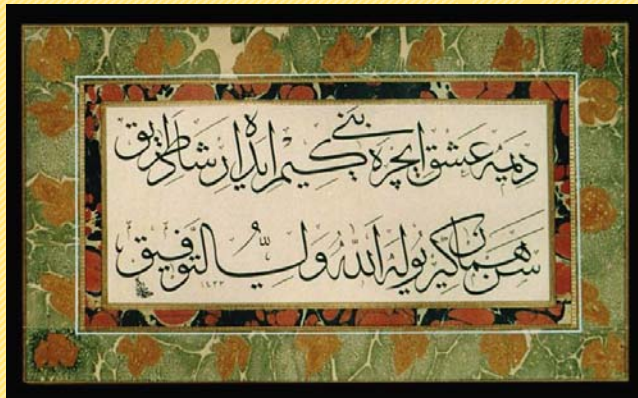 دیمه عشق ایچره بنی کیم ایده ارشاد طریق
سن همان کیر یوله الله ولی التوفیق